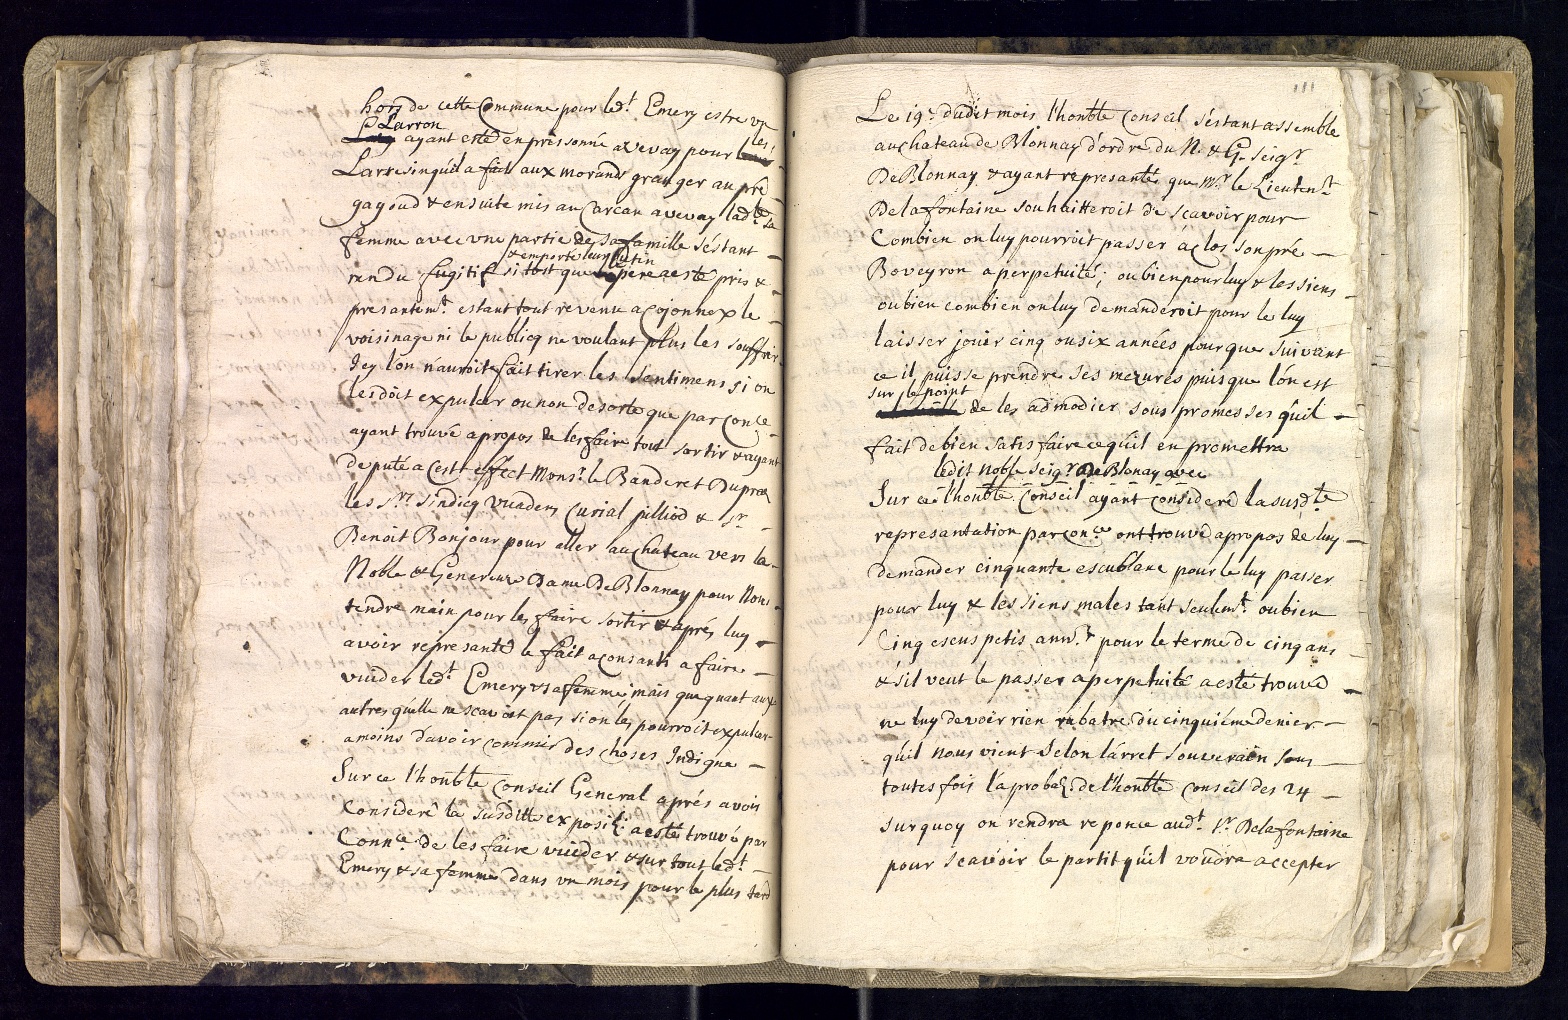 hors de cette Commune pour led.t Emery estre un
Larron
ayant esté enprisonné a vevay pour les
Larresin qu'il a fait aux morands granger au pré
gagoud & ensuite mis au Carcan a vevay lad.te sa
femme avec vne partie de sa famille s'éstant
& emporté leur butin
rendu fugitif si tost que le pere a esté pris &
presantem.t estant tout revenu a Cojonnex le
voisinage ni le publicq ne voulant plus les souffrir
Jcy l'on n'auroit fait tirer les sentimens si on
les doit expulcer ou non de sorte que par Con.ce
ayant trouvé a propos de les faire tout sortir & ayant
deputé a cest effect Mons.r le Banderet Dupraz
les S.rs sindicq vuadens Curial pilliod & S.r
Benoit Bonjour pour aller au Chateau vers la
Noble & Genereuze Dame De Blonnay pour Nous
tendre main pour les faire sortir & aprés luy
avoir represanté le fait a consanti a faire
vuider led.t Emery & sa femme mais que quant aux
autres qu'elle ne scavoit pas si on les pourroit expulcer
a moins d'avoir commis des choses Indigne
Sur ce l'honble Conseil General aprés avoir
Consideré la susditte exposi.t a esté trouvé par
Conn.ce de les faire vuider & sur tout led.t
Emery & sa femme dans vn mois pour le plus tard
111
Le 19.e dudit mois l'honble Conseil s'éstant assemble
au chateau de Blonnay d'ordre du N. & G. Seig.r
De Blonnay & ayant represanté que M.r le Lieuten.t
Delafontaine souhaitteroit de scavoir pour
Combien on luy pourroit passer à clos son pré
Boveyron a perpetuité, ou bien pour luy & les siens
ou bien combien on luy demanderoit pour le luy
laisser jouir cinq ou six années pour que suivant
ce il puisse prendre ses mezures puisque l'on est
sur le point
de les admodier sous promesses qu'il
fait de bien satisfaire ce qu'il en promettra
ledit noble seig.r de Blonay avec
Sur ce l'honble Conseil ayant consideré la susd.te
represantation par con.ce ont trouvé a propos de luy
demander cinquante escu blanc pour le luy passer
pour luy & les siens males tant seulem.t ou bien
Cinq escus petis ann.t pour le terme de cinq ans
& s'il veut le passer a perpetuité a esté trouvé
ne luy devoir rien rabatre du cinquiéme denier
qu'il nous vient selon l'arret souverain sous
toutes fois l'aproba.t de l'honble Conseil des 24
surquoy on rendra reponce aud.t S.r Delafontaine
pour scavoir le partit qu'il voudra accepter